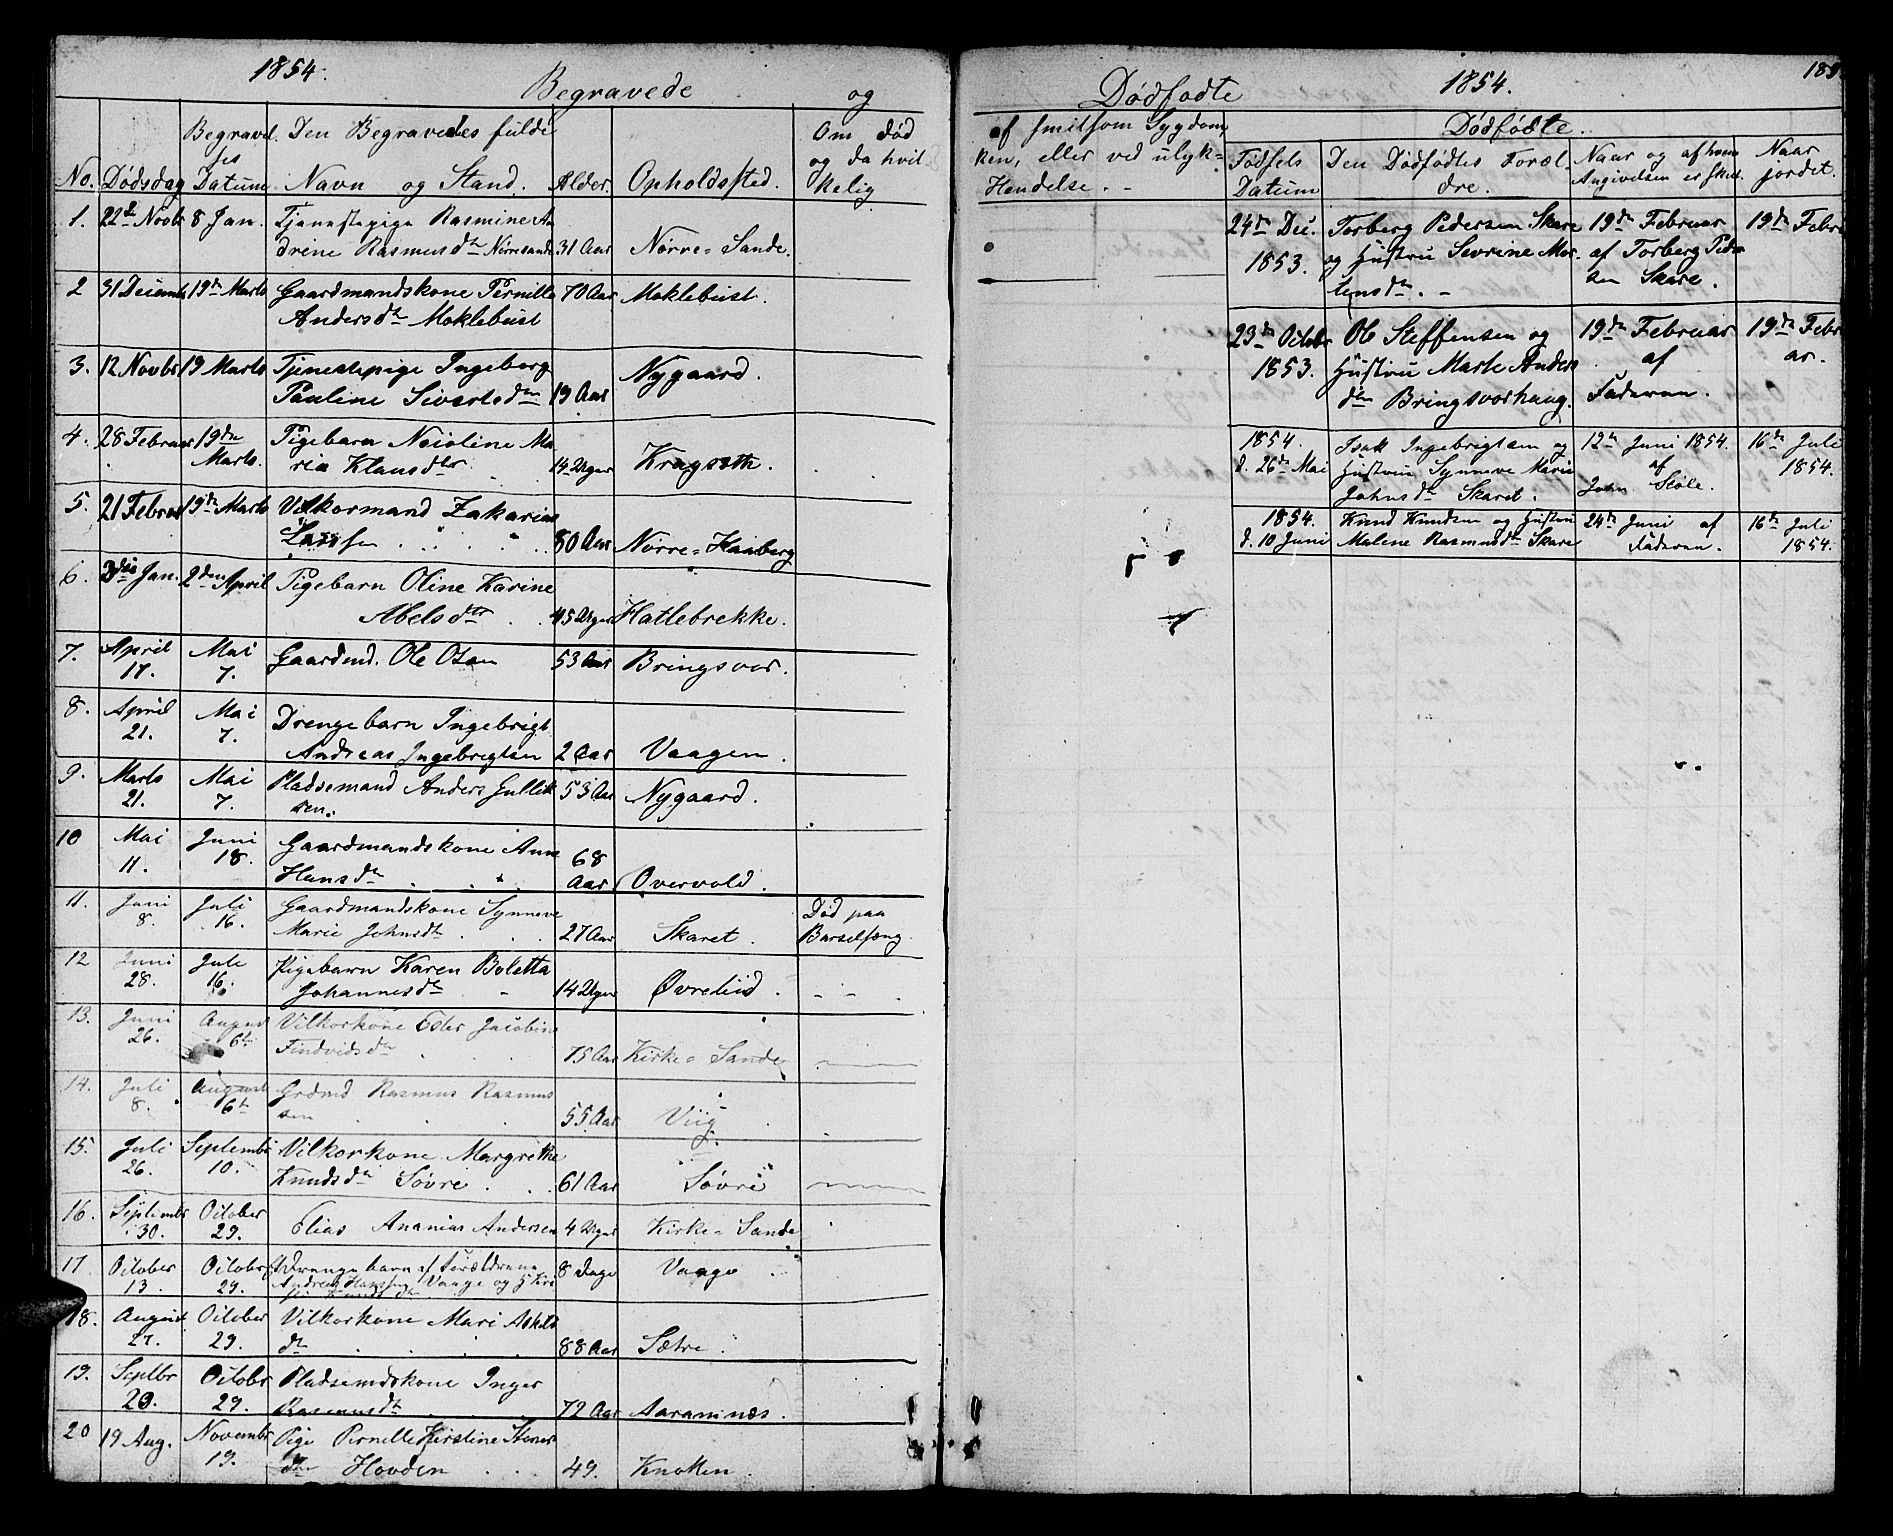 1854.
Begravede og
No. Dødsdag Begravelses Datum Den Begravedes fulde Navn og Stand. Alder. Opholdssted. Om død og da hvilkelig
1. 22de Novbr 8 Jan. Tjenestepige Rasmine An
drine Rasmusdtr Nörresande 31 Aar Nörre-Sande.
2 31 Decembr 19de Marts Gaardmandskone Pernille 70 Aar Moklebust.
Andersdtr Moklebust
3. 12 Novbr 19 Marts Tjenestepige Ingeborg
Pauline Sivertsdtr 19 Aar Nygaard.
4. 28 Februar 19de Marts. Pigebarn Nicoline Ma
ria Klausdtr. 14 Uger Kragseth.
5. 21 Februar 19de Marts Vilkormand Zakarias
Larssen 80 Aar Nörre-Haaberg
6. 3die Jan. 2den April Pigebarn Oline Karine
Abelsdtr 45 Uger Hatlebrekke.
7. April 17. Mai 7. Gaardmd. Ole Olsen 53 Aar Bringsvor.
8. April 21. Mai 7. Drengebarn Ingebrigt
Andreas Ingebrigtsen 2 Aar Vaagen.
9. Marts 21. Mai 7. Pladsemand Anders Gullik
sen. 53 Aar Nygaard.
10 Mai 11. Juni 18. Gaardmandskone Anne
Hansdtr 68 Aar Overvold.
11. Juni 8. Juli 16. Gaardmandskone Synneve
Marie Johnsdtr 27 Aar Skaret. Død paa Barselseng.
12 Juni 28. Juli 16. Pigebarn Karen Boletta
Johannesdtr 14 Uger Øvreliid.
13. Juni 26. August 6te Vilkorkone Ester Jacobine
Findvidsdtr 75 Aar Kirke-Sande
14. Juli 8. August 6te Grdmd Rasmus Rasmus
sen 55 Aar Viig
15. Juli 26. Septembr 10. Vilkorkone Margrethe
Knudsdtr Søvre 61 Aar Søvre
16. Septembr 30. October 29. Elias Ananias Andersen 4 Uger Kirke-Sande
17 October 13. October 29. Drengebarn af Forældrene
Andreas Hanssen Vaage og H. Kir 8 Dage Vaage
18. August 27. October 29. Vilkorkone Mari Askils
dtr 88 Aar Sætre.
19. Septbr 20. Octobr 29. Pladsemdskone Inger
Rasmusdtr 72 Aar Aaramnæs.
20 19 Aug. Novembr 19. Pige Pernille Kirstine Stener
dtr Hovden 49. Knotten.
Dødfødte 1854. 185
af smitsom Sygdom,
ken, eller ved ulyk-
Hendelse. -
Dødfødte.
Fødsels Datum Den Dødfødtes Foræl
dre. Naar og af hvem Angivelsen er skeet. Naar jordet.
24de Dec. 1853. Torberg Pedersen Skare
og Hustru Sevrine Mor
tensdtr. - 19de Februar
af Torberg Peder
sen Skare. 19de Febru
23de Octobr 1853. Ole Steffensen og
Hustru Marte Anders
dtr Bringsvorhaug. 19de Februar
af
Faderen. 19de Febru
ar.
1854. d. 26de Mai Isak Ingebrigtsen og
Hustru Synneve Marie
Johnsdtr Skaret. 12te Juni 1854.
af
John Støle. 16de Juli
1854.
1854. d. 10 Juni Knud Knudsen og Hustru
Malene Rasmusdtr Skare 24de Juni af
Faderen. 16de Juli
1854.